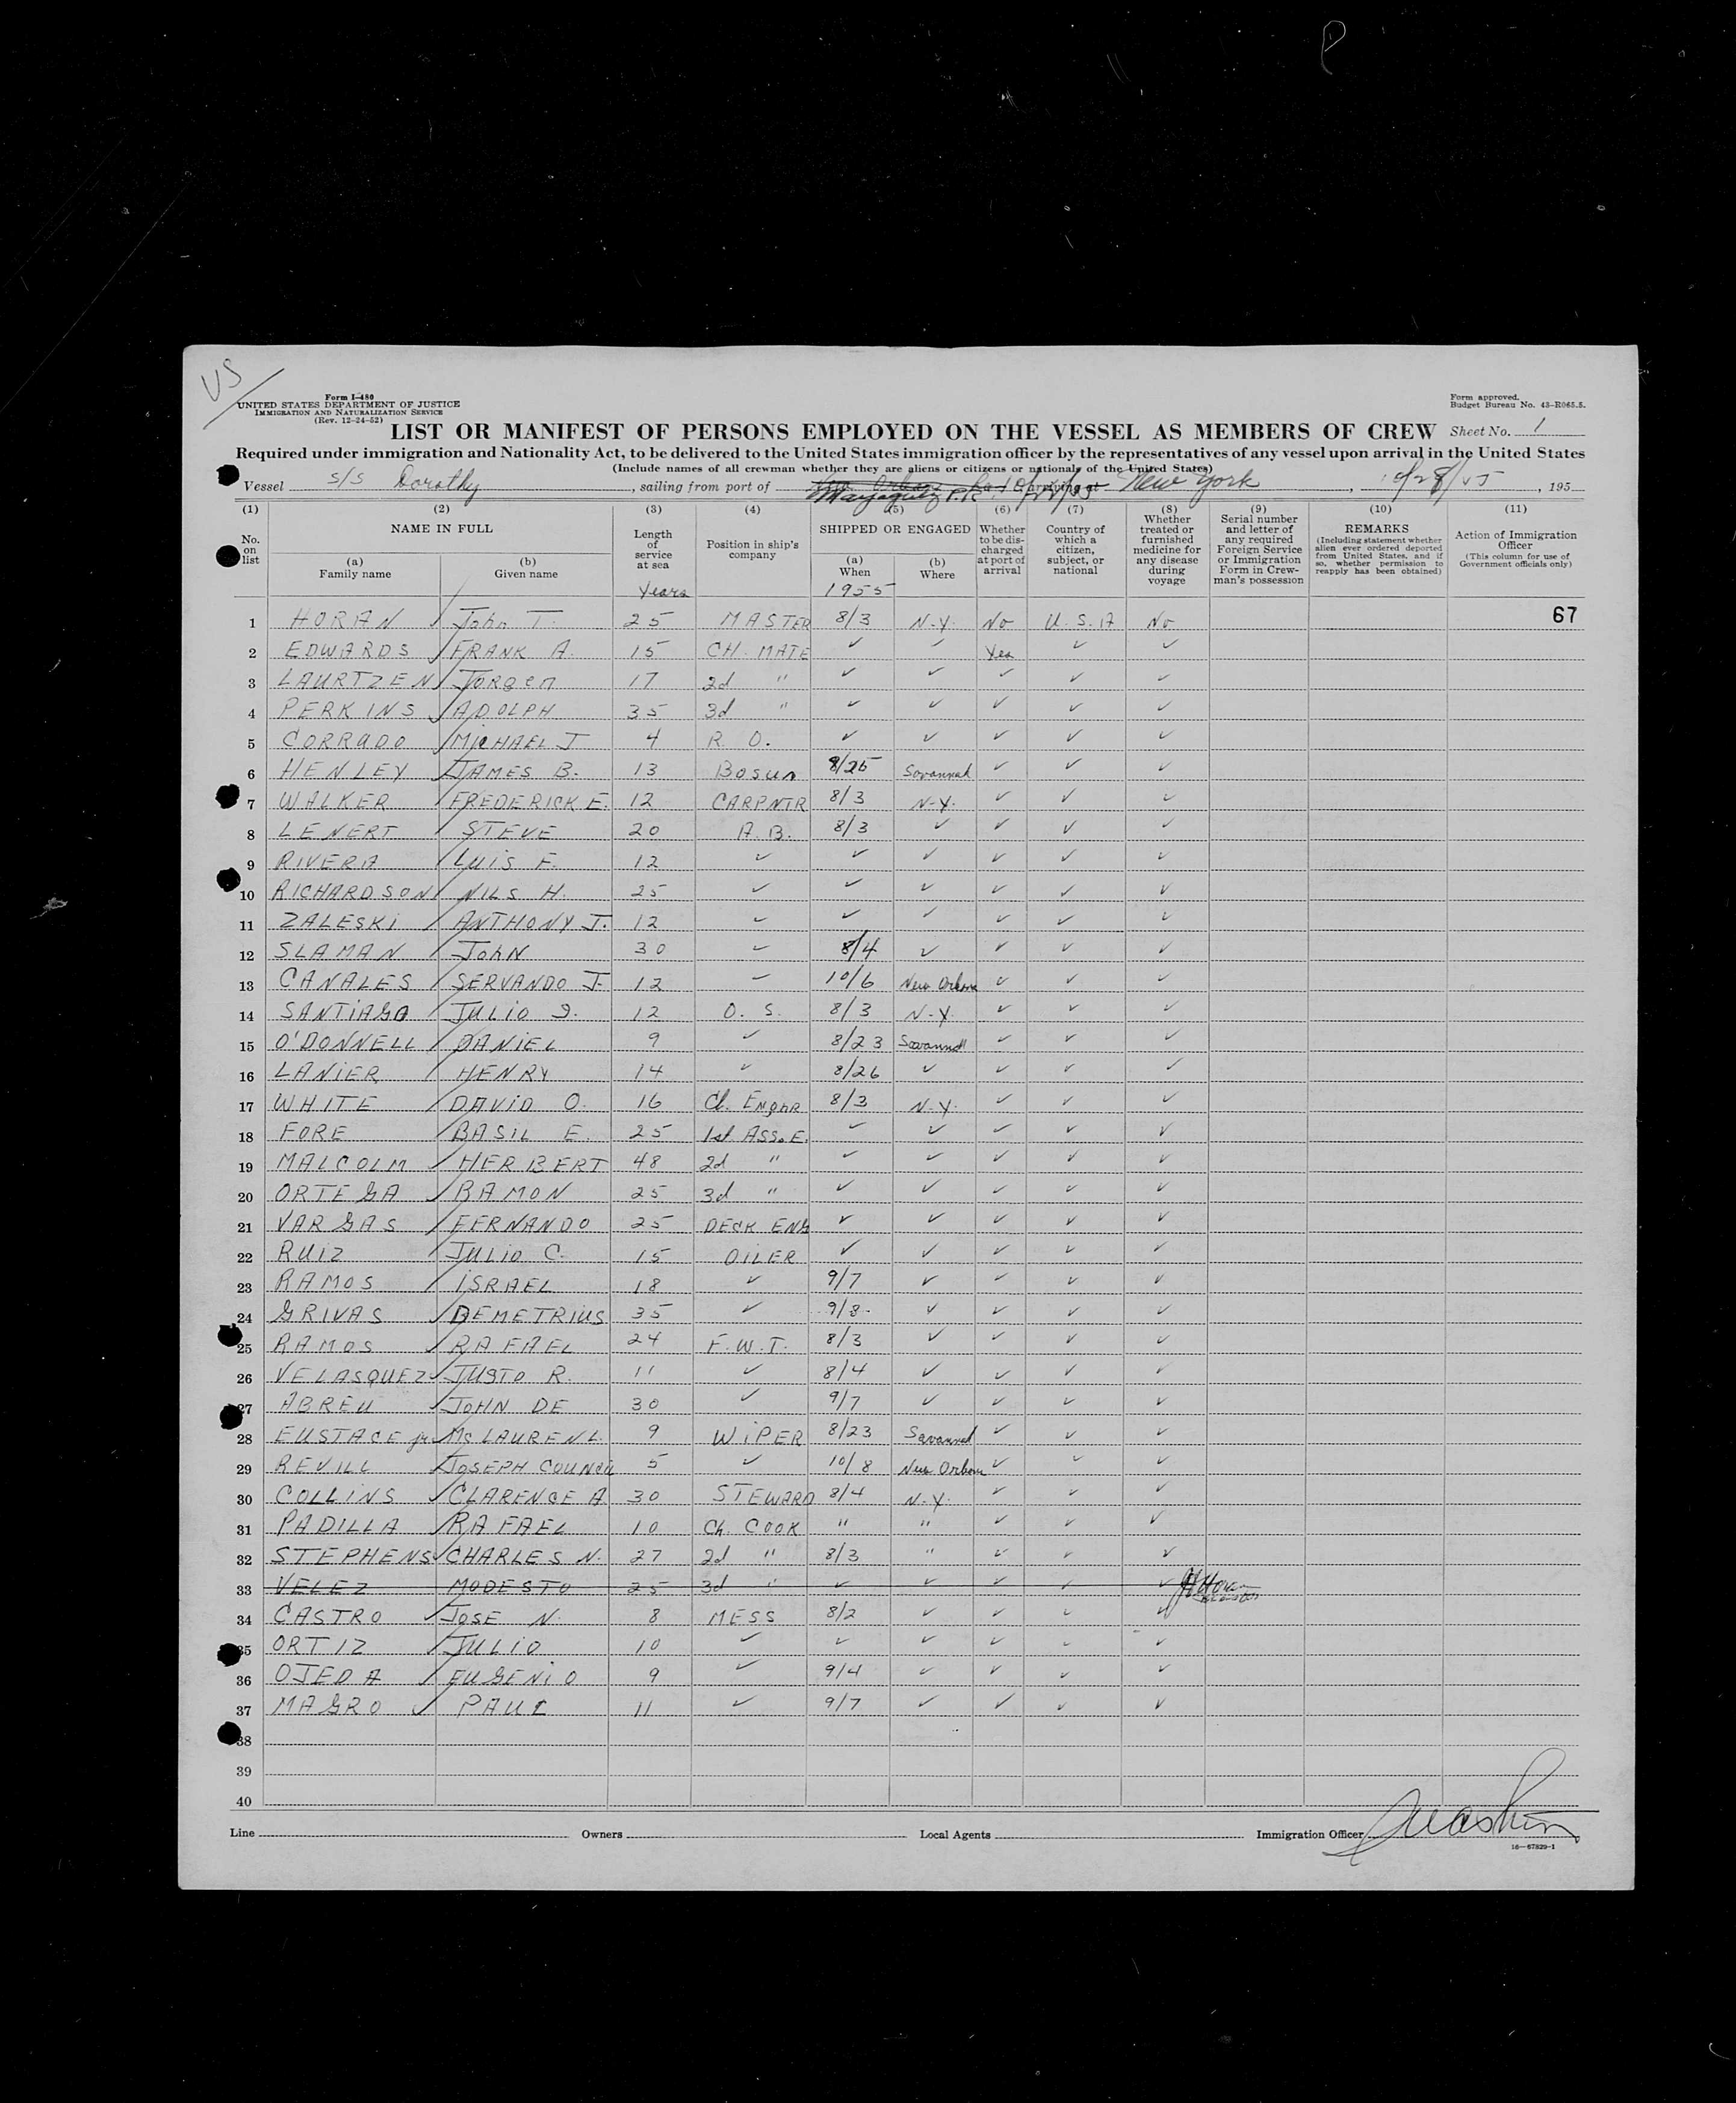 VS
Form I-480
UNITED STATES DEPARTMENT OF JUSTICE
IMMIGRATION AND NATURALIZATION SERVICE
(Rev. 12-24-52)
Form approved.
Budget Bureau No. 43-R065.5.
LIST OR MANIFEST OF PERSONS EMPLOYED ON THE VESSEL AS MEMBERS OF CREW Sheet No. 1
Required under immigration and Nationality Act, to be delivered to the United States immigration officer by the representatives of any vessel upon arrival in the United States
(Include names of all crewman whether they are aliens or citizens or nationals of the United States)
Vessel S/S Dorothy, sailing from port of Mayaguez P.R. arriving at New York, 10/28/55, 195
(1) (2) (3) (4) (5) (6) (7) (8) (9) (10) (11)
No. on list
NAME IN FULL
(a) Family name
(b) Given name
Length of service at sea
Position in ship's company
SHIPPED OR ENGAGED
(a) When
(b) Where
Whether to be discharged at port of arrival
Country of which a citizen, subject, or national
Whether treated or furnished medicine for any disease during voyage
Serial number and letter of any required Foreign Service or Immigration Form in Crewman's possession
REMARKS
(Including statement whether alien ever ordered deported from United States, and if so, whether permission to reapply has been obtained)
Action of Immigration Officer
(This column for use of Government officials only)
Years 1955
1 HORAN / John T. 25 MASTER 8/3 N.Y. No U.S.A No 67
2 EDWARDS / FRANK A. 15 CH. MATE ✓ ✓ Yes ✓ ✓
3 LAURTZEN / Jorgen 17 2d " ✓ ✓ ✓ ✓ ✓
4 PERKINS / ADOLPH 35 3d " ✓ ✓ ✓ ✓ ✓
5 CORRADO / MICHAEL J 4 R. O. ✓ ✓ ✓ ✓ ✓
6 HENLEY / JAMES B. 13 Bosun 8/25 Savannah ✓ ✓ ✓
7 WALKER / FREDERICK E. 12 CARPNTR 8/3 N.Y. ✓ ✓ ✓
8 LENERT / STEVE 20 A.B. 8/3 ✓ ✓ ✓ ✓
9 RIVERA / LUIS F. 12 ✓ ✓ ✓ ✓ ✓ ✓
10 RICHARDSON / NILS H. 25 ✓ ✓ ✓ ✓ ✓ ✓
11 ZALESKI / ANTHONY J. 12 ✓ ✓ ✓ ✓ ✓ ✓
12 SLAMAN / JOHN 30 ✓ 8/4 ✓ ✓ ✓ ✓
13 CANALES / SERVANDO J. 12 ✓ 10/6 New Orleans ✓ ✓ ✓
14 SANTIAGO / JULIO I. 12 O. S. 8/3 N.Y. ✓ ✓ ✓
15 O'DONNELL / DANIEL 9 ✓ 8/23 Savannah ✓ ✓ ✓
16 LANIER / HENRY 14 ✓ 8/26 ✓ ✓ ✓ ✓
17 WHITE / DAVID O. 16 Ch. Engnr 8/3 N.Y. ✓ ✓ ✓
18 FORE / BASIL E. 25 1st Ass. E. ✓ ✓ ✓ ✓ ✓
19 MALCOLM / HERBERT 48 2d " ✓ ✓ ✓ ✓ ✓
20 ORTEGA / RAMON 25 3d " ✓ ✓ ✓ ✓ ✓
21 VARGAS / FERNANDO 25 DECK ENG ✓ ✓ ✓ ✓ ✓
22 RUIZ / JULIO C. 15 OILER ✓ ✓ ✓ ✓ ✓
23 RAMOS / ISRAEL 18 ✓ 9/7 ✓ ✓ ✓ ✓
24 GRIVAS / DEMETRIUS 35 ✓ 9/8 ✓ ✓ ✓ ✓
25 RAMOS / RAFAEL 24 F.W.T. 8/3 ✓ ✓ ✓ ✓
26 VELASQUEZ / JUSTO R. 11 ✓ 8/4 ✓ ✓ ✓ ✓
27 ABREU / JOHN DE 30 ✓ 9/7 ✓ ✓ ✓ ✓
28 EUSTACE jr / Mc LAUREN L. 9 WIPER 8/23 Savannah ✓ ✓ ✓
29 REVILL / JOSEPH COUNCIL 5 ✓ 10/8 New Orleans ✓ ✓ ✓
30 COLLINS / CLARENCE A 30 STEWARD 8/4 N.Y. ✓ ✓ ✓
31 PADILLA / RAFAEL 10 Ch. COOK " " ✓ ✓ ✓
32 STEPHENS / CHARLES N. 27 2d " 8/3 " ✓ ✓ ✓
33 VELEZ MODESTO 25 3d " ✓ ✓ ✓ ✓ ✓
34 CASTRO / JOSE N. 8 MESS 8/2 ✓ ✓ ✓ ✓
35 ORTIZ / JULIO 10 ✓ ✓ ✓ ✓ ✓ ✓
36 OJEDA / EUGENIO 9 ✓ 9/4 ✓ ✓ ✓ ✓
37 MAGRO / PAUL 11 ✓ 9/7 ✓ ✓ ✓ ✓
38
39
40
Line Owners Local Agents Immigration Officer
16—67829-1